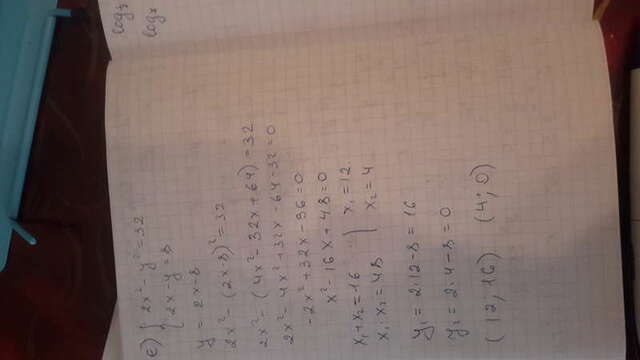 log₃
log₇
c) { 2x² - y² = 32
{ 2x - y = 8
y = 2x - 8
2x² - (2x - 8)² = 32
2x² - (4x² - 32x + 64) = 32
2x² - 4x² + 32x - 64 - 32 = 0
-2x² + 32x - 96 = 0
x² - 16x + 48 = 0
x₁ + x₂ = 16 } x₁ = 12
x₁ x₂ = 48 } x₂ = 4
y₁ = 2·12 - 8 = 16
y₂ = 2·4 - 8 = 0
(12, 16) (4; 0)